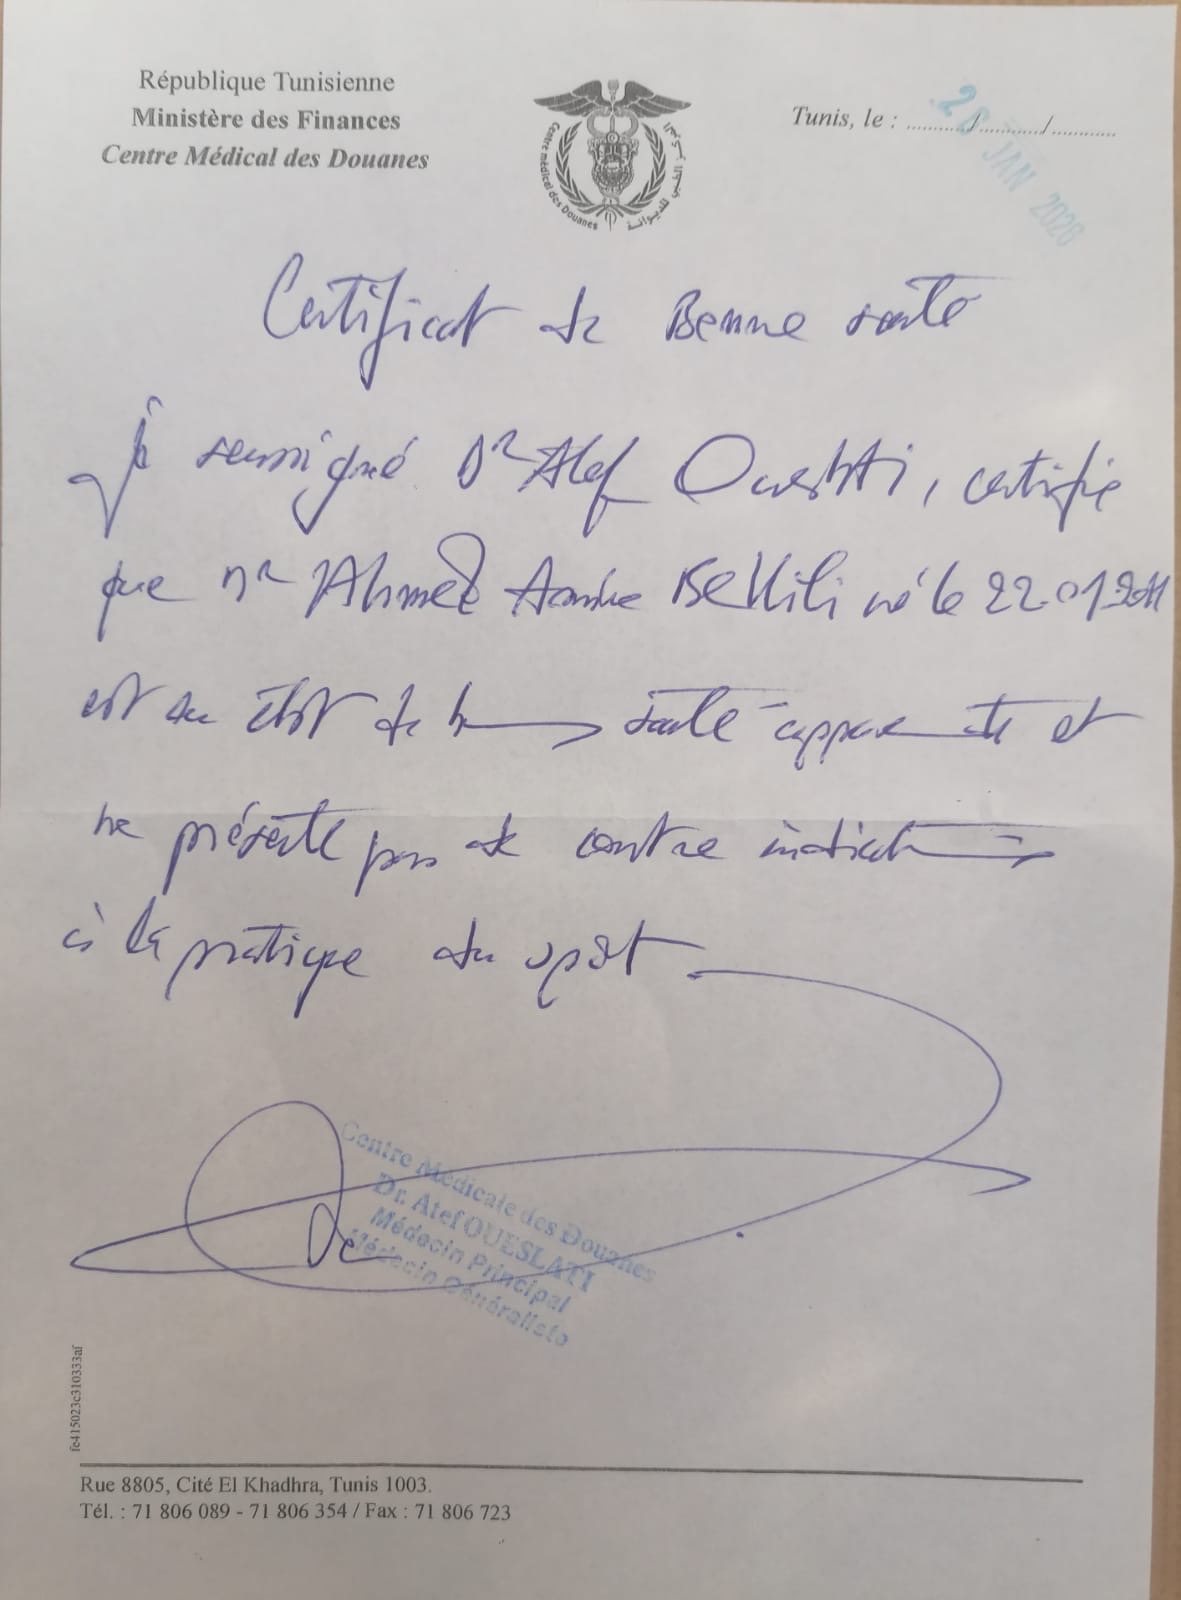 République Tunisienne
Ministère des Finances
Centre Médical des Douanes
Centre médical des Douanes
المركز الطبي للديوانة
Tunis, le : ........../.........../...........
JAN 2026
Certificat de Bonne santé
Je soussigné Dr Atef Oueslati, certifie
que Mr Ahmed BEKILI né le 22.01.2011
est en état de bonne santé apparente et
ne présente pas de contre indication
à la pratique du sport.
Centre Médicale des Douanes
Dr. Atef OUESLATI
Médecin Principal
Médecin Généraliste
fe415023c310333af
Rue 8805, Cité El Khadhra, Tunis 1003.
Tél. : 71 806 089 - 71 806 354 / Fax : 71 806 723